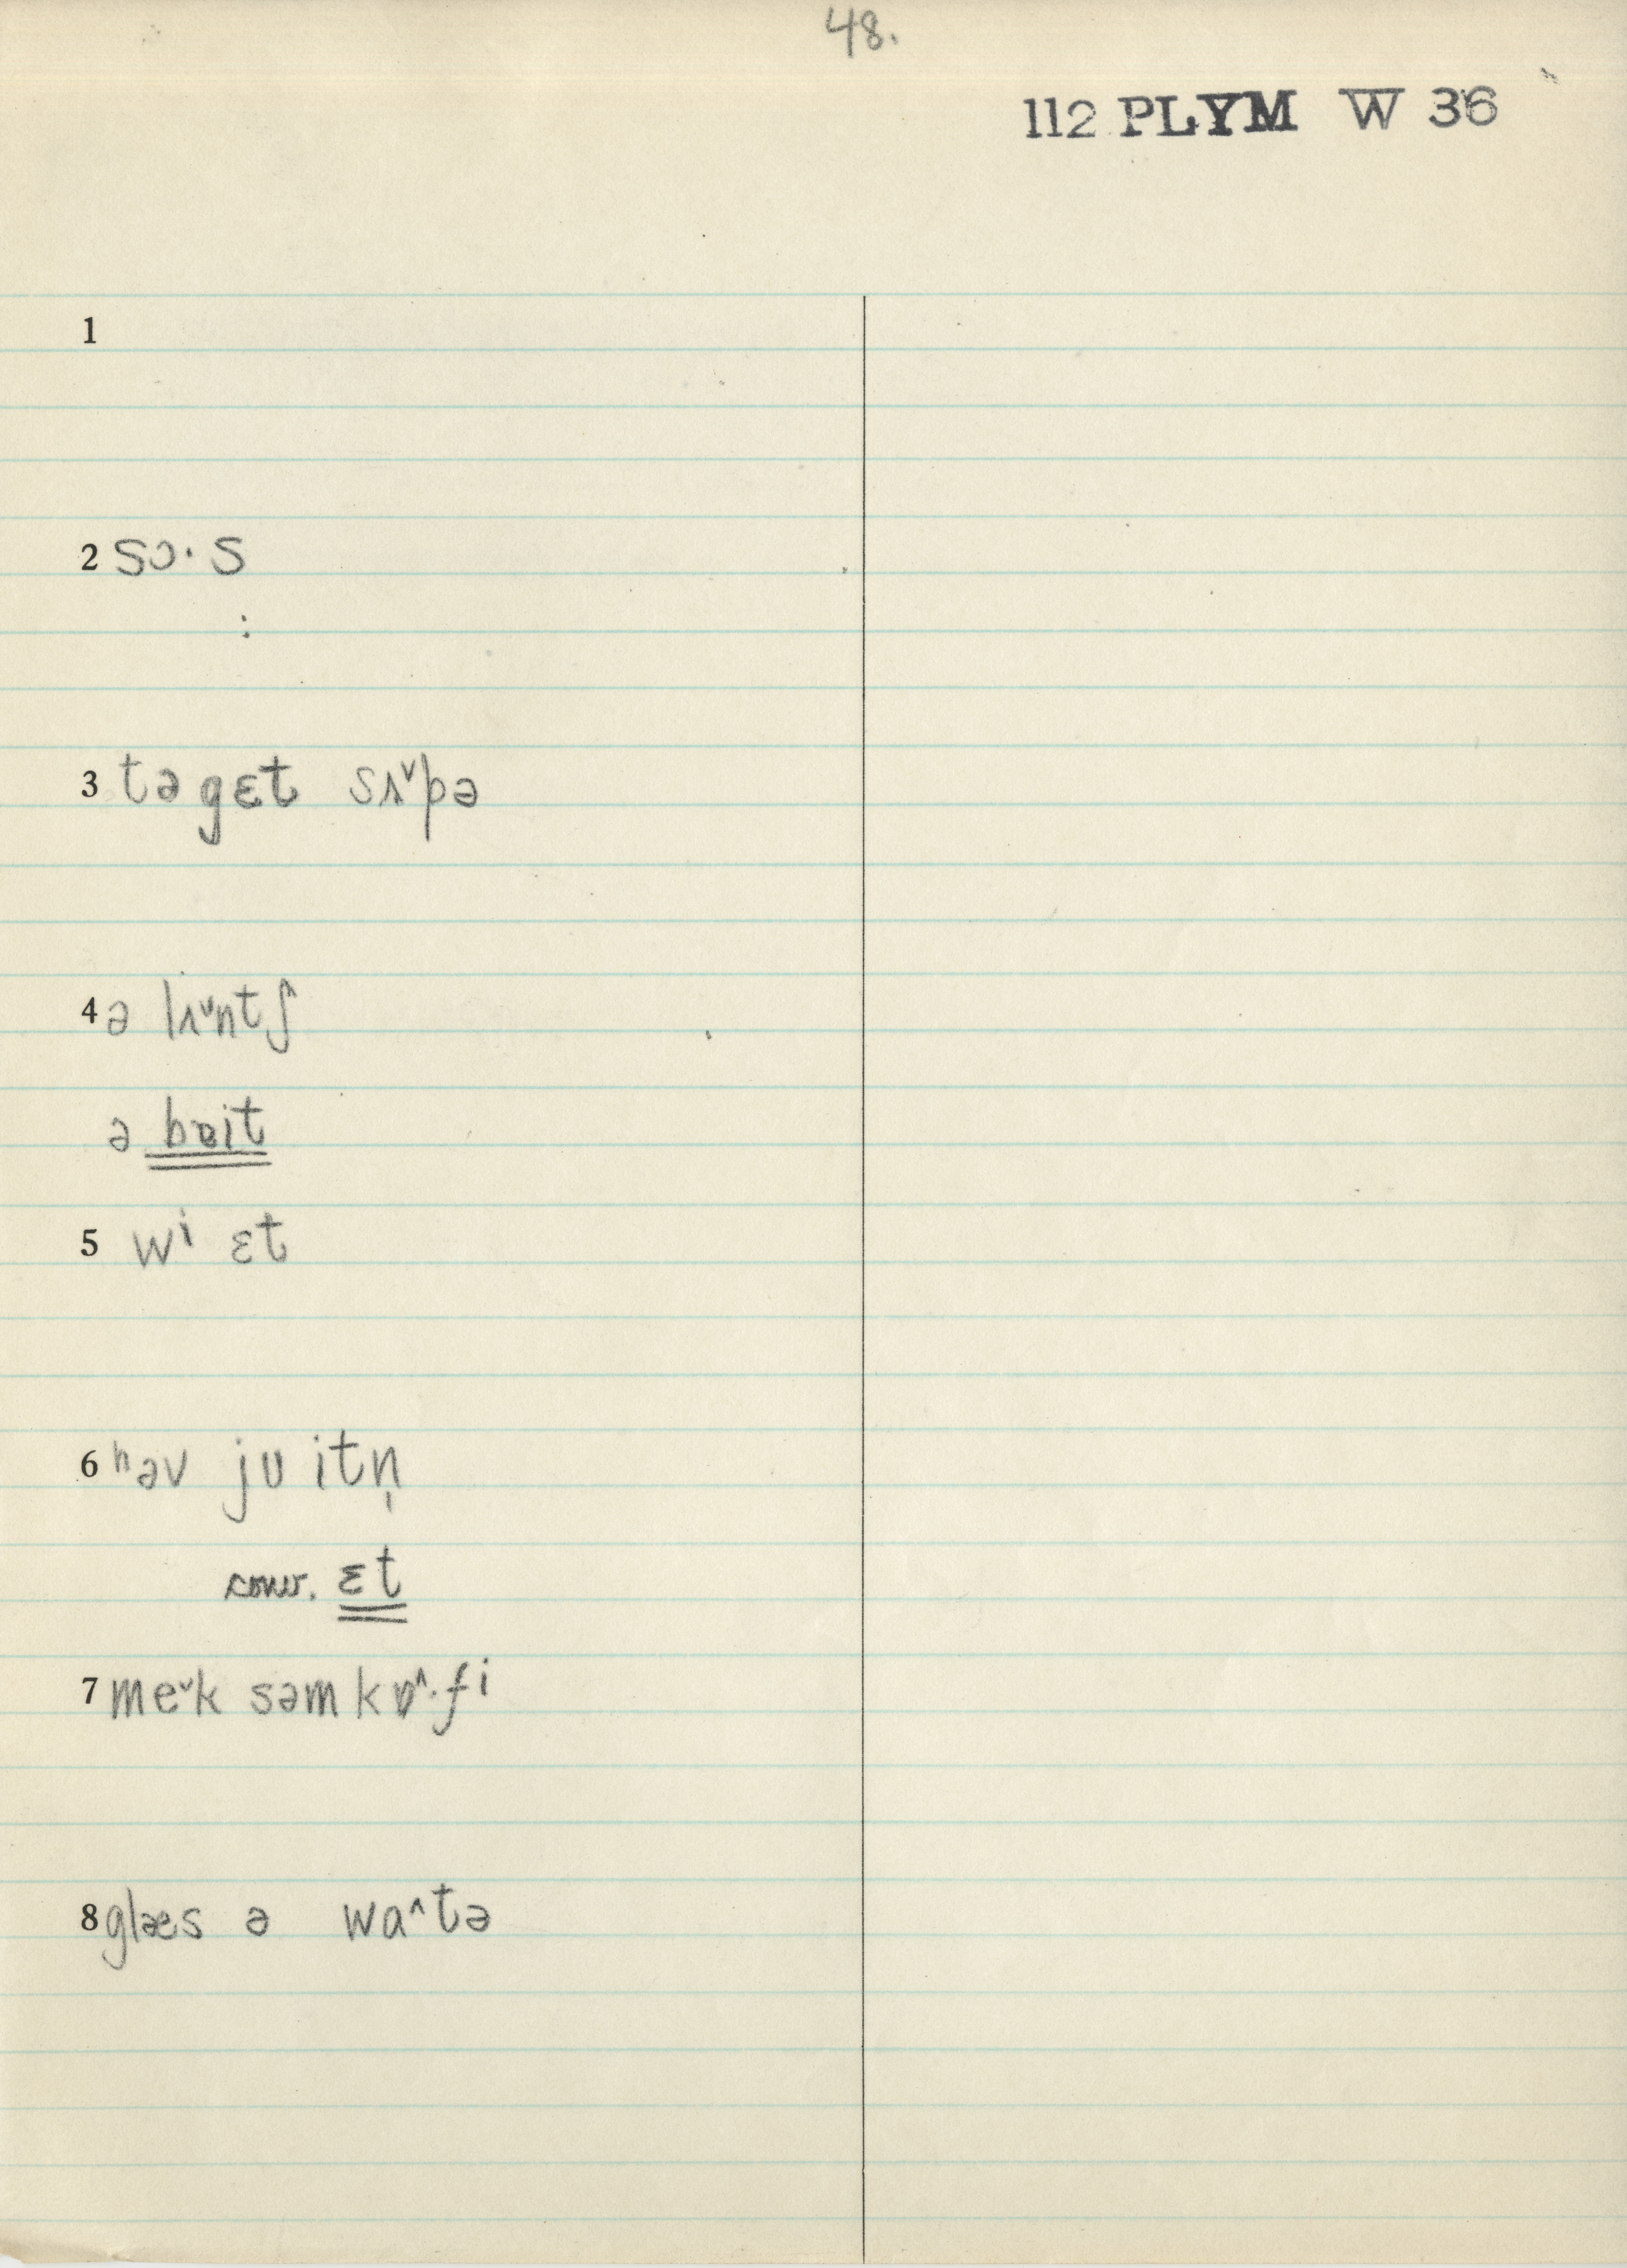 48.
112 PLYM W 36
1
2 sɔ·s
:
3 tə gɛt sʌ˅pə
4 ə lʌ˅ntʃ
ə bɐit
5 wi ɛt
6 həv jʊ itn̩
conv. ɛt
7 me˅k səm kɒ^·fi
8 glæs ə wa^tə